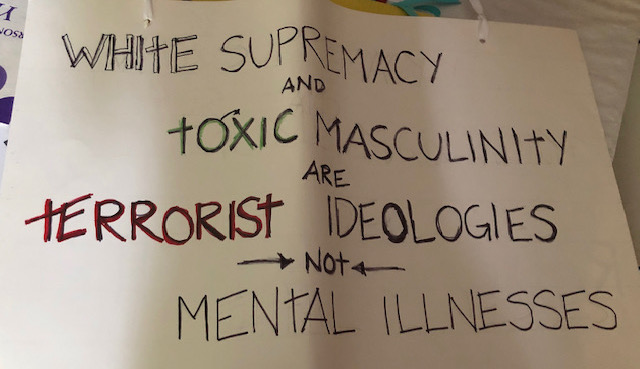 WHITE SUPREMACY
AND
TOXIC MASCULINITY
ARE
TERRORIST IDEOLOGIES
→ NOT ←
MENTAL ILLNESSES